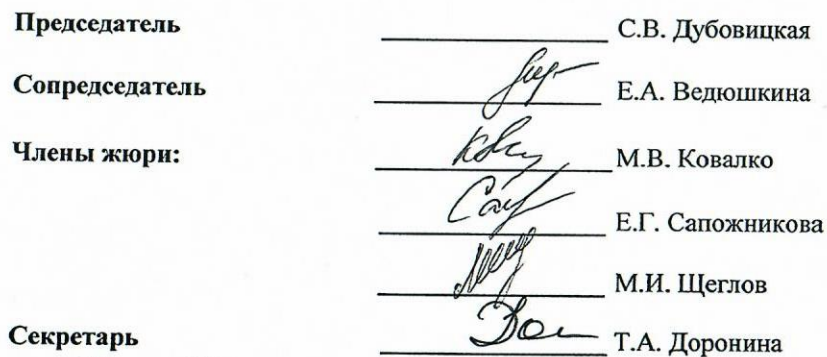 Председатель С.В. Дубовицкая
Сопредседатель Е.А. Ведюшкина
Члены жюри: М.В. Ковалко
Е.Г. Сапожникова
М.И. Щеглов
Секретарь Т.А. Доронина